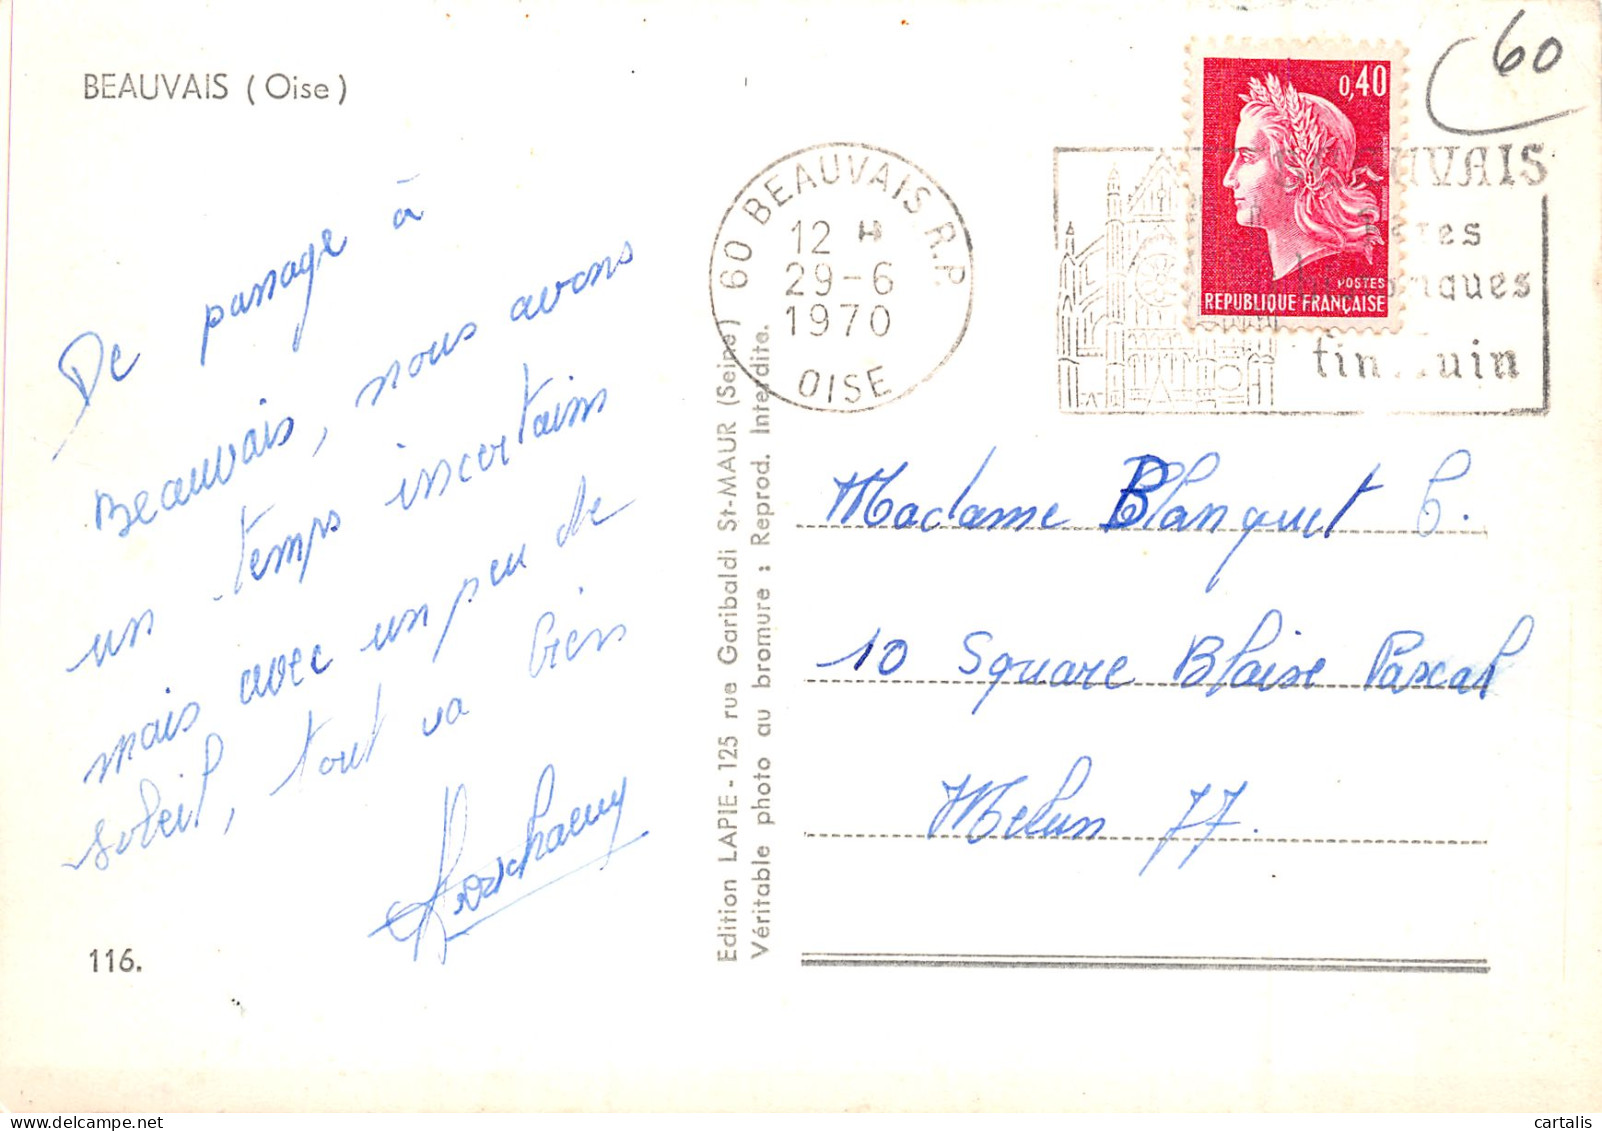 BEAUVAIS (Oise)
De passage à
Beauvais, nous avons
un temps incertains
mais avec un peu de
soleil, tout va bien
116.
Edition LAPIE - 125 rue Garibaldi St-MAUR (Seine)
Véritable photo au bromure : Reprod. Interdite.
60 BEAUVAIS R.P.
12 H
29-6
1970
OISE
0,40
POSTES
REPUBLIQUE FRANÇAISE
60
fin juin
Madame Blanquet
10 Square Blaise Pascal
Melun 77.
cartalis